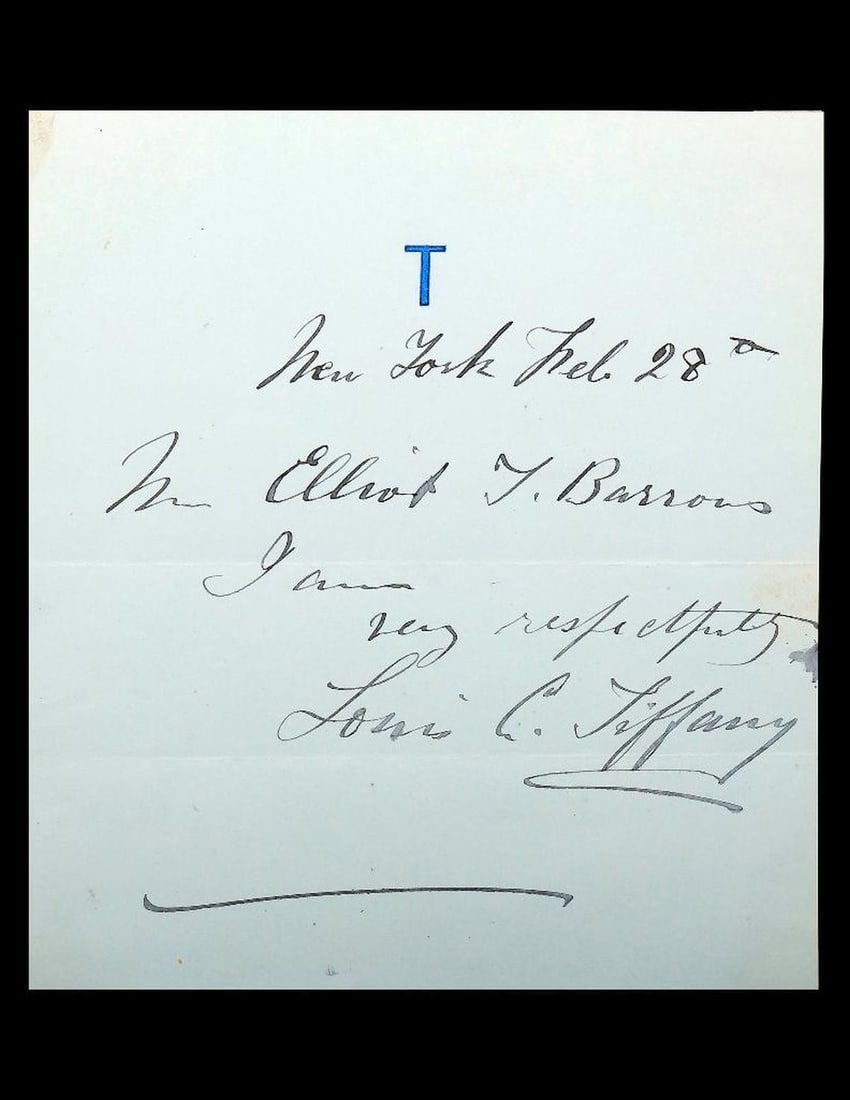 T
New York Feb 28th
Mr Elliot T. Barrows
I am
very respectfully
Louis C. Tiffany